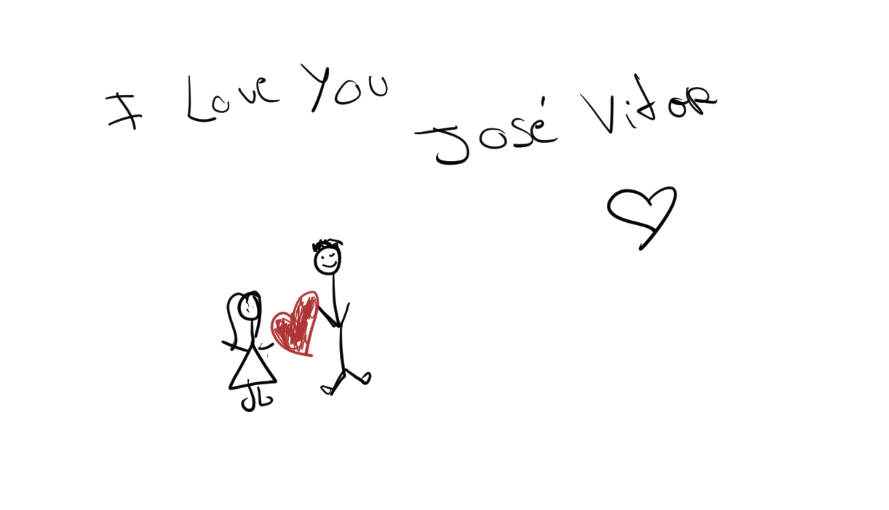 I Love You
José Vitor